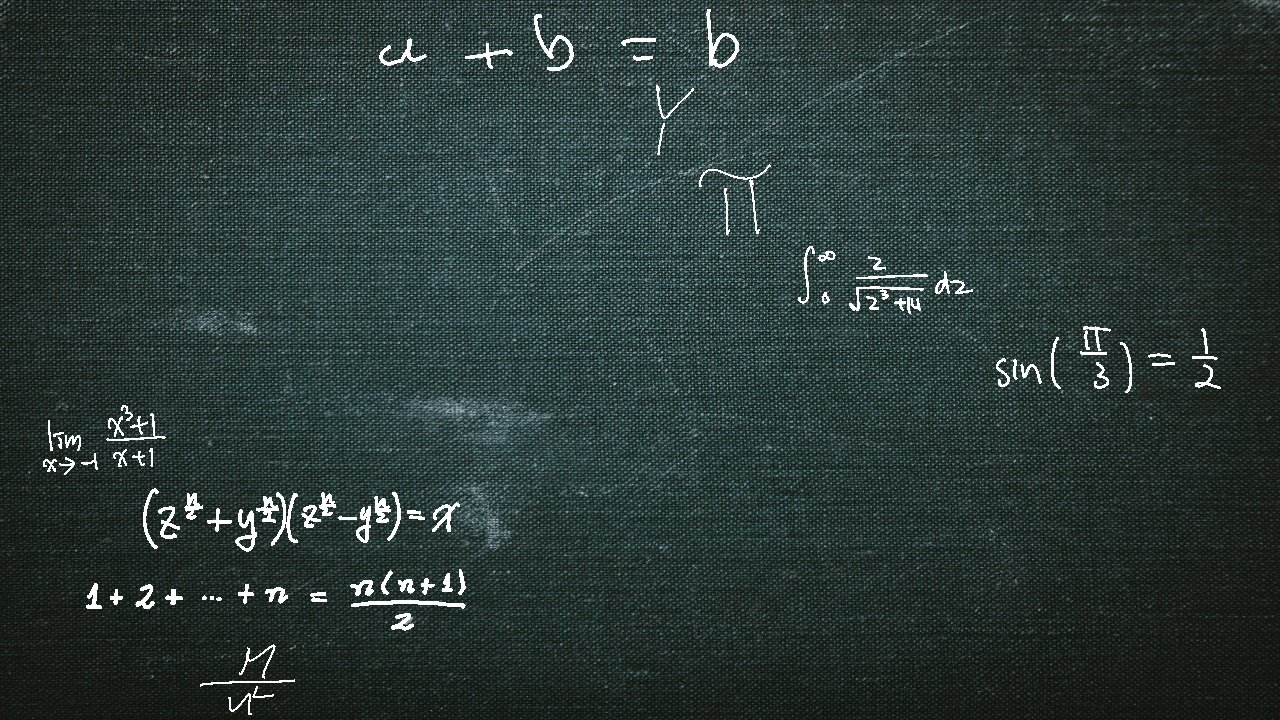 a + b = b
Y
π
∫₀^∞ 2/√(2³+14) dz
sin(π/3) = 1/2
lim x→-1 (x³+1)/(x+1)
(z^(n/2) + y^(n/2))(z^(n/2) - y^(n/2)) = x
1 + 2 + ... + n = n(n+1)/2